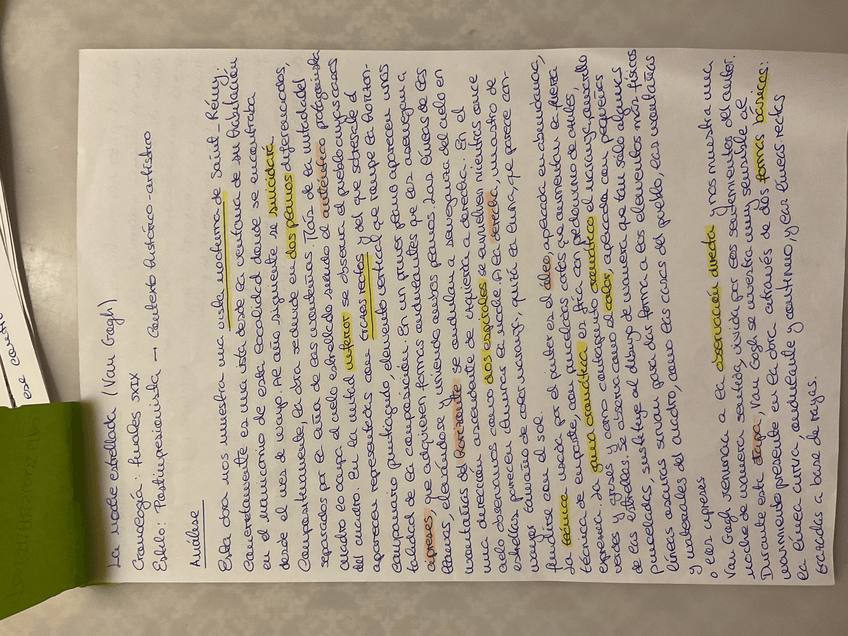 La noche estrellada (Van Gogh)
Cronología: finales SXIX
Estilo: Postimpresionista → Contexto histórico-artístico
Análise
Esta obra nos muestra una vista nocturna de Saint-Rémy.
Concretamente es una vista desde la ventana de su habitación
en el manicomio de esta localidad donde se encontraba
desde el mes de mayo. Al año siguiente se suicidará.
Compositivamente, la obra se divide en dos planos diferenciados,
separados por la línea de las montañas. Más de la mitad del
cuadro lo ocupa el cielo estrellado siendo el auténtico protagonista
del cuadro. En la mitad inferior se observa el pueblo cuyas casas
aparecen representadas con líneas rectas y del que sobresale el
campanario puntiagudo elemento vertical que rompe la horizon-
talidad de la composición. En un primer plano aparecen unos
cipreses, que adquieren formas ondulantes que les asemejan a
llamas, elevándose y uniendo ambos planos. Las líneas de las
montañas del horizonte se ondulan a semejanza del cielo en
una dirección ascendente de izquierda a derecha. En el
cielo observamos como dos espirales se envuelven mientras once
estrellas parecen iluminar la noche. A la derecha, un astro de
mayor tamaño de color naranja, quizá la luna, que parece con-
fundirse con el sol.
La técnica usada por el pintor es el óleo, aplicada en abundancia,
técnica de empaste, con pinceladas cortas que aumentan la fuerza
expresiva. La gama cromática es fría con predominio de azules,
verdes y grises y como contrapunto cromático el naranja amarillo
de las estrellas. Se observa como el color, aplicado con pequeñas
pinceladas, sustituye al dibujo de manera que tan sólo algunas
líneas oscuras sirven para dar forma a los elementos más físicos
y materiales del cuadro, como las casas del pueblo, las montañas
o los cipreses
Van Gogh renuncia a la observación directa y nos muestra una
noche de manera sentida, vivida por los sentimientos del autor.
Durante esta etapa, Van Gogh se muestra muy sensible al
movimiento presente en la obra a través de dos formas básicas:
la línea curva, ondulante y continuo, y las líneas rectas
trazadas a base de rayas.